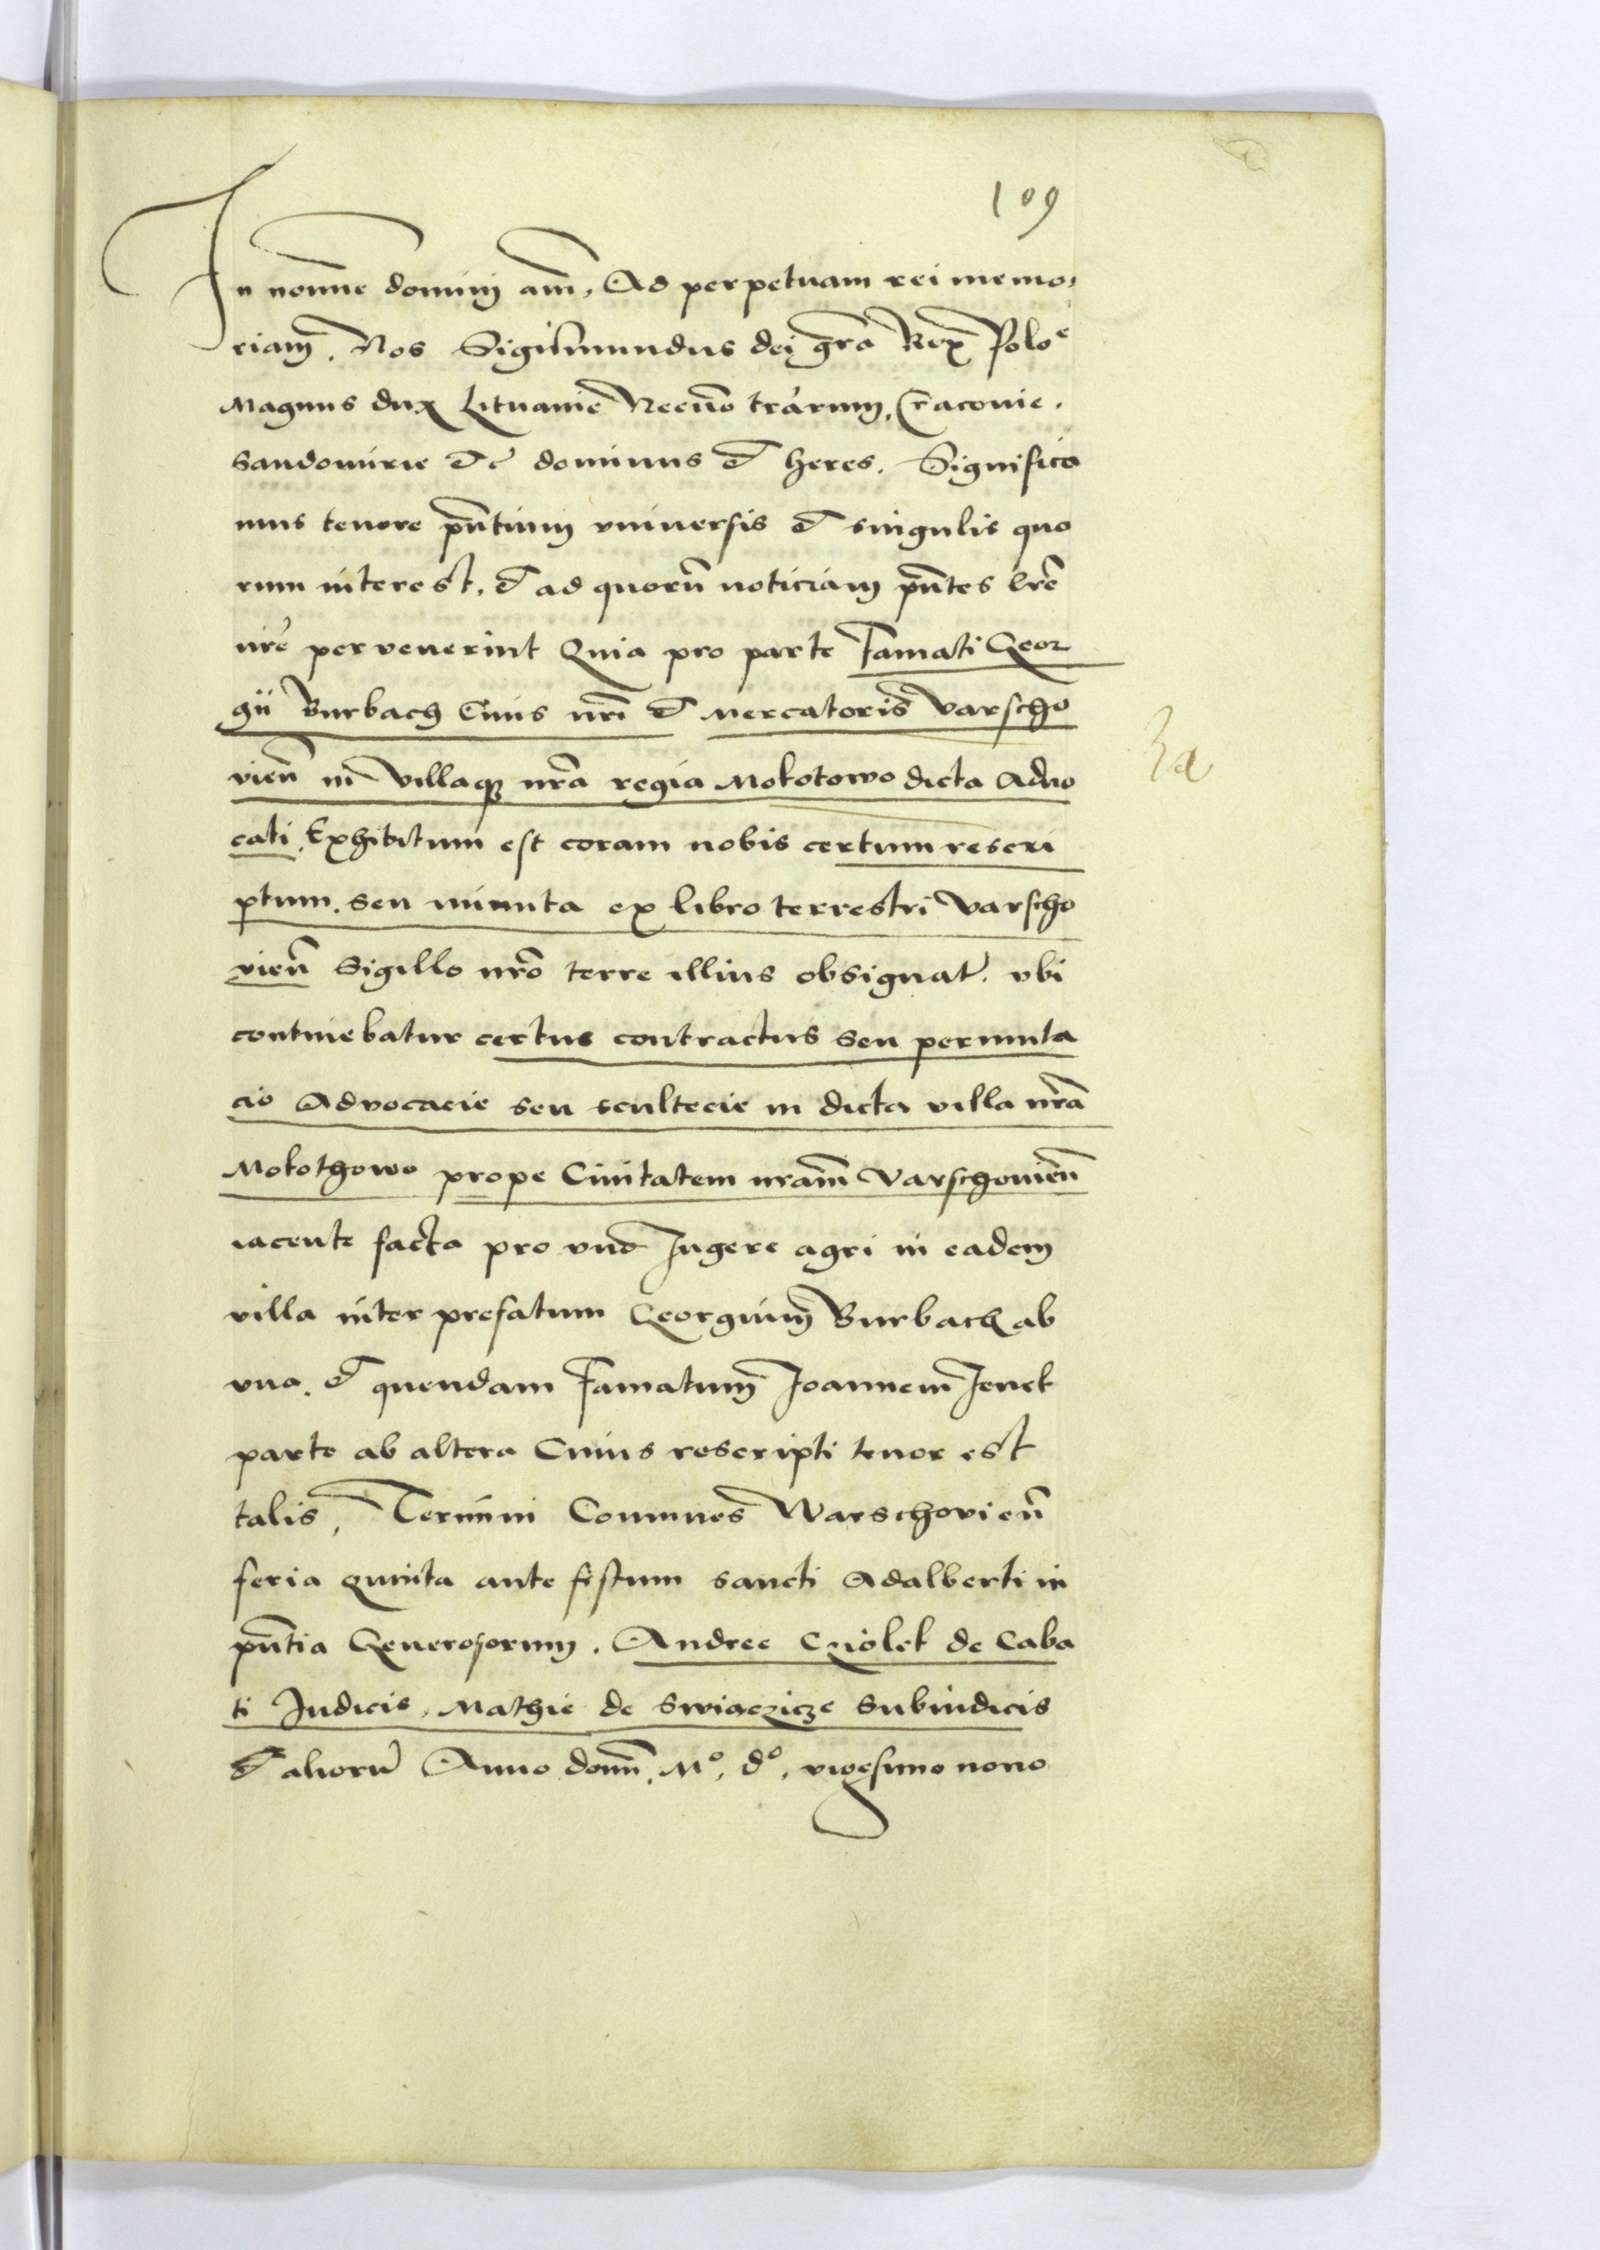 109
In nomine domini am̄. Ad perpetuam rei memo,
riam. Nos Sigismundus dei gr̄a Rex Poloᵉ
Magnus dux Lituanie Necnō trārum, Cracovie.
Sandomirie etc dominus et heres. Significa
mus tenore pn̄tium universis et singulis quo
rum interest. et ad quorū noticiam pn̄tes lrē
nrē pervenerint Quia pro parte Famati Geor
gii Burbach Civis nrī et Mercatoris Varscho
vien̄ in Villaqꝫ nrā regia Mokotowo dicta Advo
cati. Exhibitum est coram nobis certum rescri
ptum. seu minuta ex libro terrestri Varscho
vien̄ Sigillo nrō terre illius obsignat. ubi
continebatur certus contractus seu permuta
cio Advocacie seu scultecie in dicta villa nrā
Mokothowo prope Civitatem nram̄ Varschovien̄
iacente facta pro uno Jugere agri in eadem
villa inter prefatum Georgium Burbach ab
una. et quendam Famatum Joannem Jenek
parte ab altera Cuius rescripti tenor est
talis, Termini Comunes Warschovien̄
feria quinta ante festum sancti Adalberti in
pn̄tia Generosorum. Andree Cziolek de Caba
ti Judicis, Mathie de Swiączicze Subiudicis
et aliorū Anno domī. Mº. dº. vigesimo nono